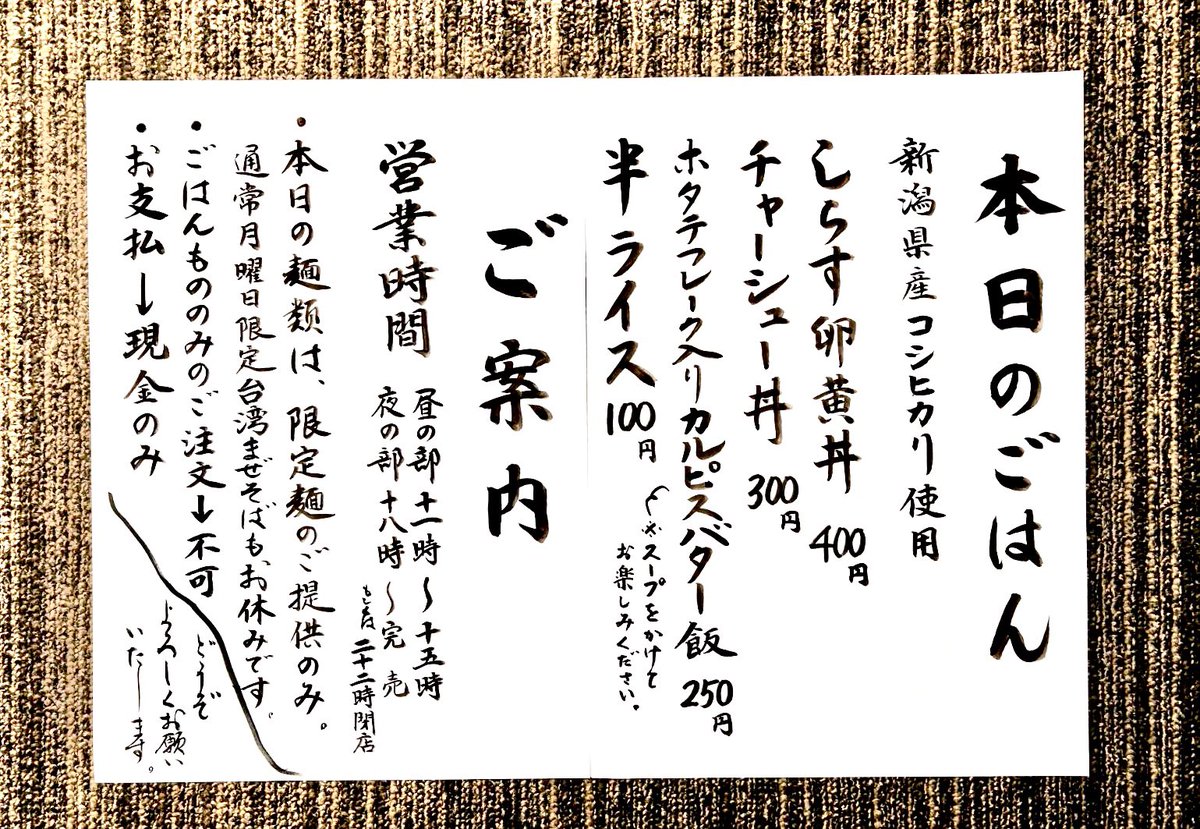 本日のごはん
新潟県産コシヒカリ使用
しらす卵黄丼 400円
チャーシュー丼 300円
ホタテフレーク入りカルピスバター飯 250円
※スープをかけて
お楽しみください。
半ライス 100円
ご案内
営業時間
昼の部 十一時〜十五時
夜の部 十八時〜完売
もしくは 二十二時閉店
・本日の麺類は、限定麺のご提供のみ。
通常月曜日限定台湾まぜそばもお休みです。
・ごはんもののみのご注文→不可
・お支払→現金のみ
どうぞ
よろしくお願い
いたします。